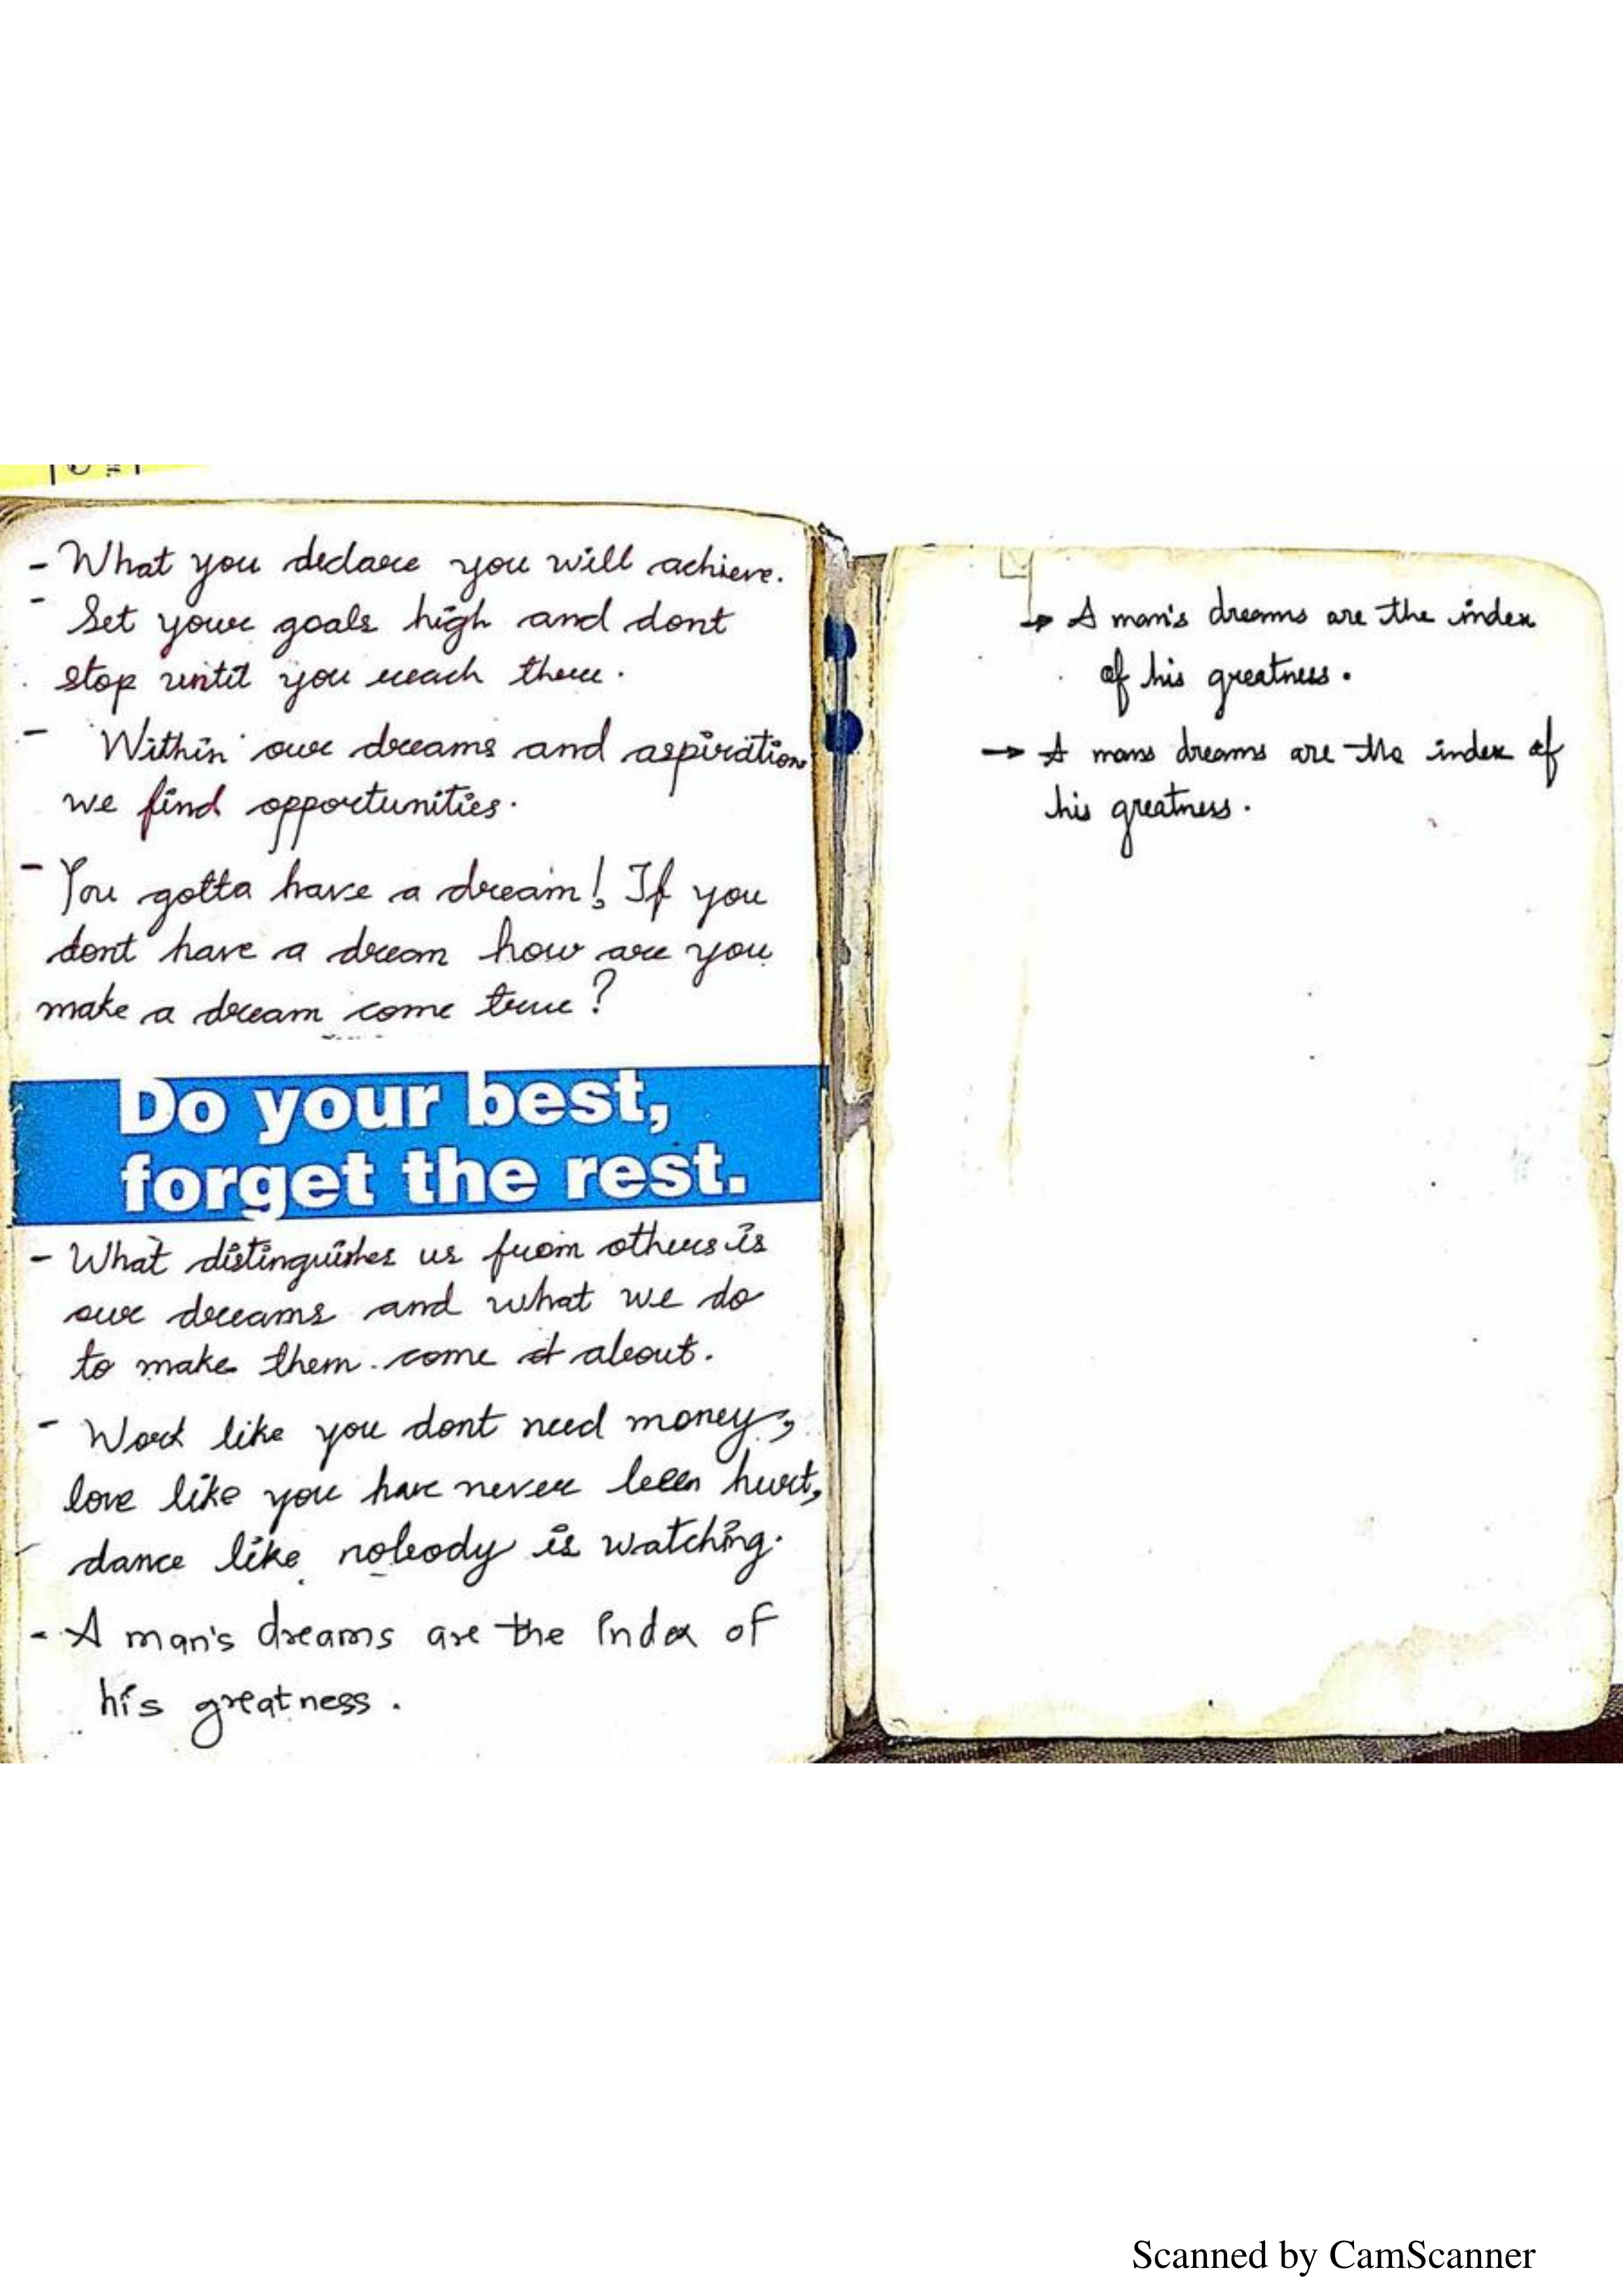 - What you declare you will achieve.
- Set your goals high and dont
stop until you reach there.
- Within our dreams and aspirations
we find opportunities.
- You gotta have a dream! If you
dont have a dream how are you
make a dream come true?
Do your best,
forget the rest.
- What distinguishes us from others is
our dreams and what we do
to make them come about.
- Work like you dont need money,
love like you have never been hurt,
dance like nobody is watching.
- A man's dreams are the index of
his greatness.
→ A man's dreams are the index
of his greatness.
→ A mans dreams are the index of
his greatness.
Scanned by CamScanner